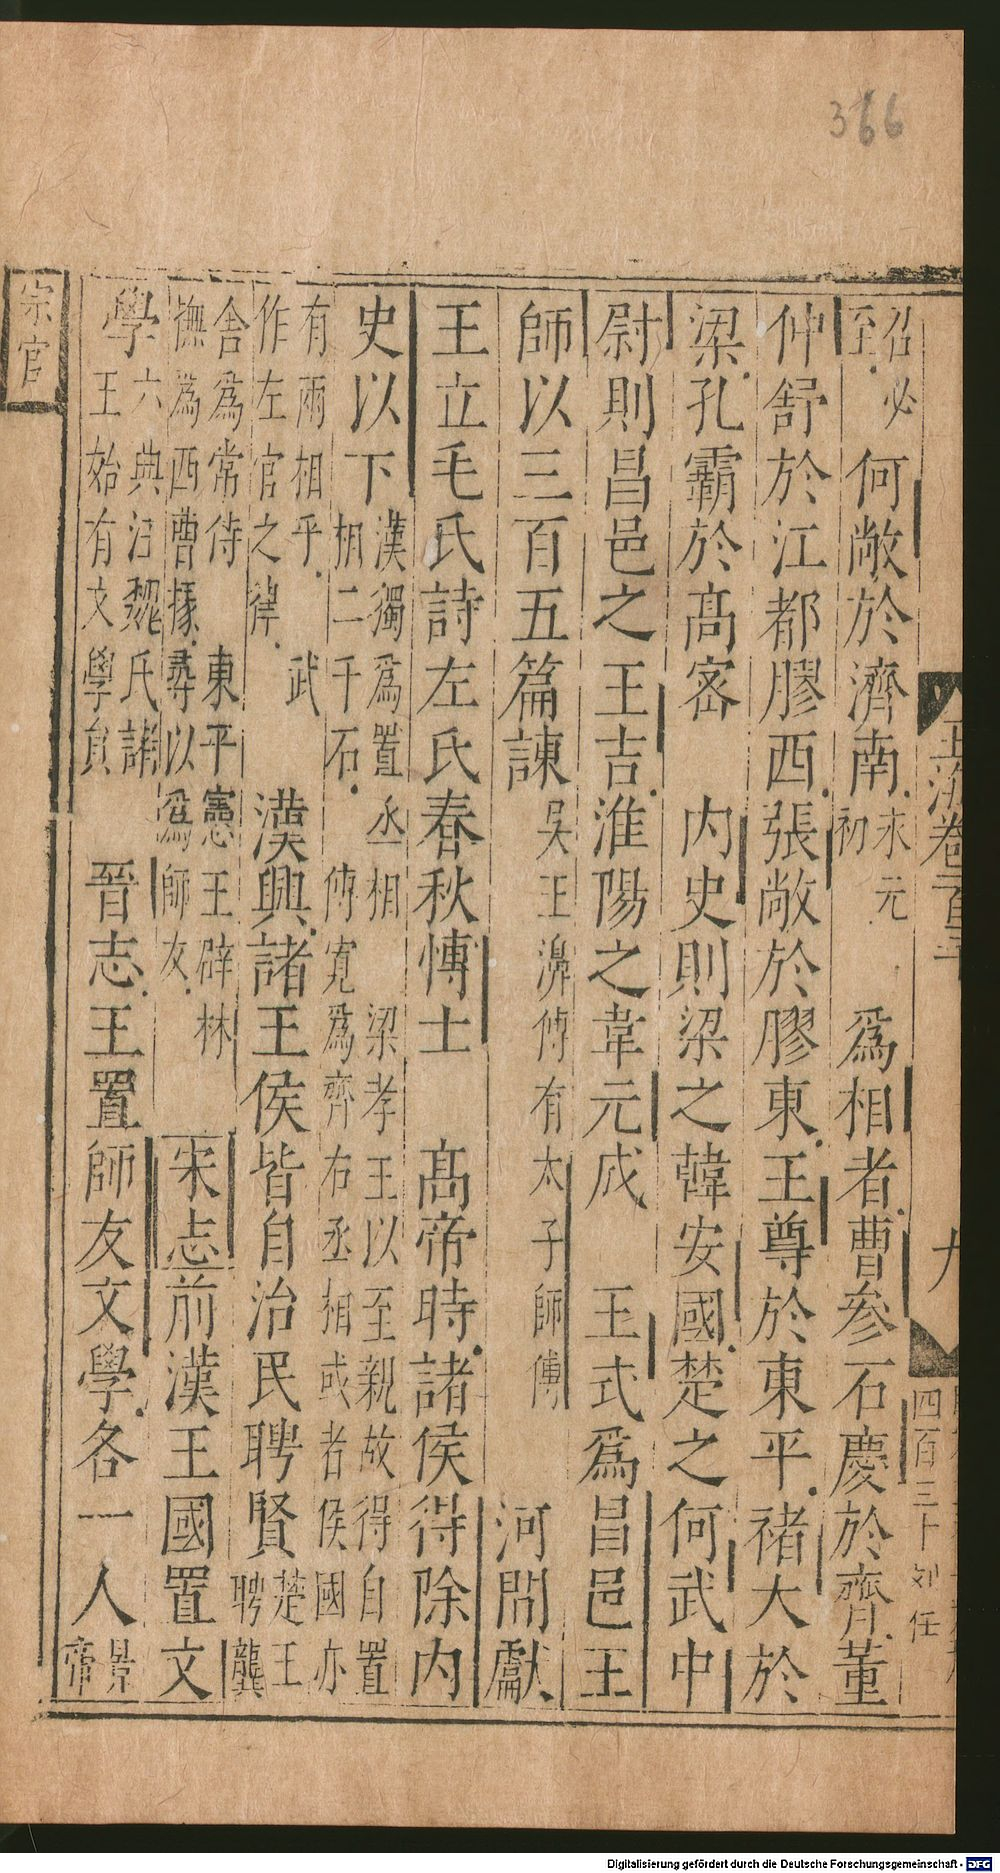 366
召必至何敞於濟南末元初爲相者曹參石慶於齊董
仲舒於江都膠西張敞於膠東王尊於東平褚大於
梁孔霸於高密 内史則梁之韓安國楚之何武中
尉則昌邑之王吉淮陽之韋元成 王式爲昌邑王
師以三百五篇諫吳王濞傅有太子師傅 河間獻
王立毛氏詩左氏春秋博士 高帝時諸侯得除内
史以下漢獨爲置丞相相二千石 傅寬爲齊右丞相或者侯國亦梁孝王以至親故得自置
有兩相乎 武作左官之律 漢興諸王侯皆自治民聘賢楚王聘龔
舍爲常侍 東平憲王辟林撫爲西曹掾尋以爲師友 宋志前漢王國置文
學六典注魏氏諸王始有文學員 晉志王置師友文學各一人景帝
宗官
玉海卷百
九
四百三十 刘任
Digitalisierung gefördert durch die Deutsche Forschungsgemeinschaft - DFG